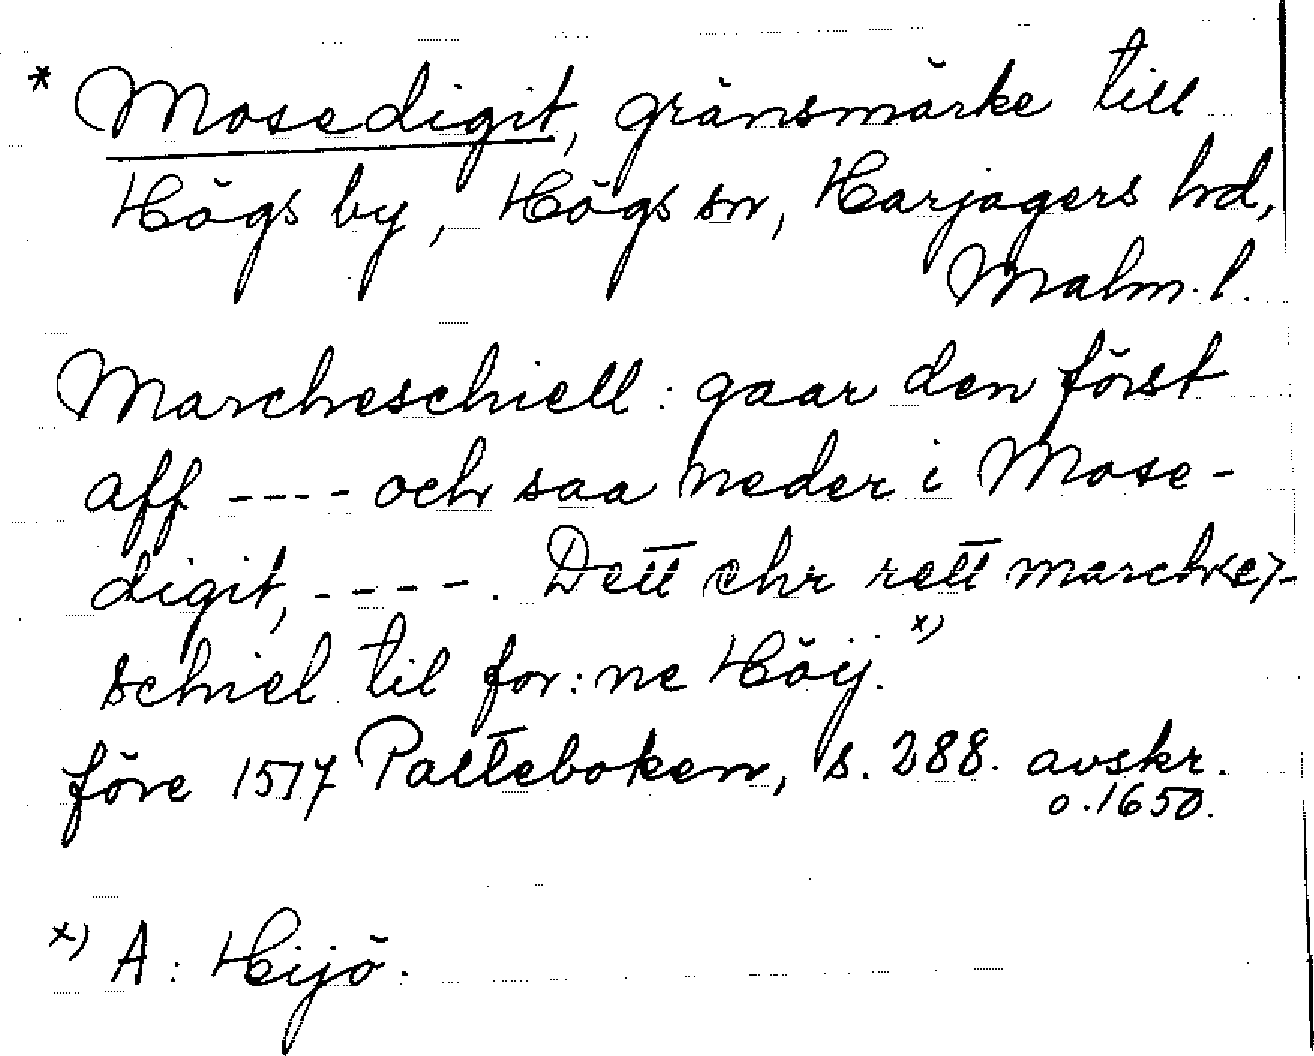 * Mosedigit, gränsmärke till
Högs by, Högs sn, Harjagers hd,
Malm. l.
Marcheschiell: gaar den först
aff ---- och saa neder i Mose-
digit, ----. Dett ehr rett march<e>-
schiel til for:ne Höÿ. x)
före 1517 Palteboken, s. 288. avskr.
o. 1650.
x) A: Hijö.